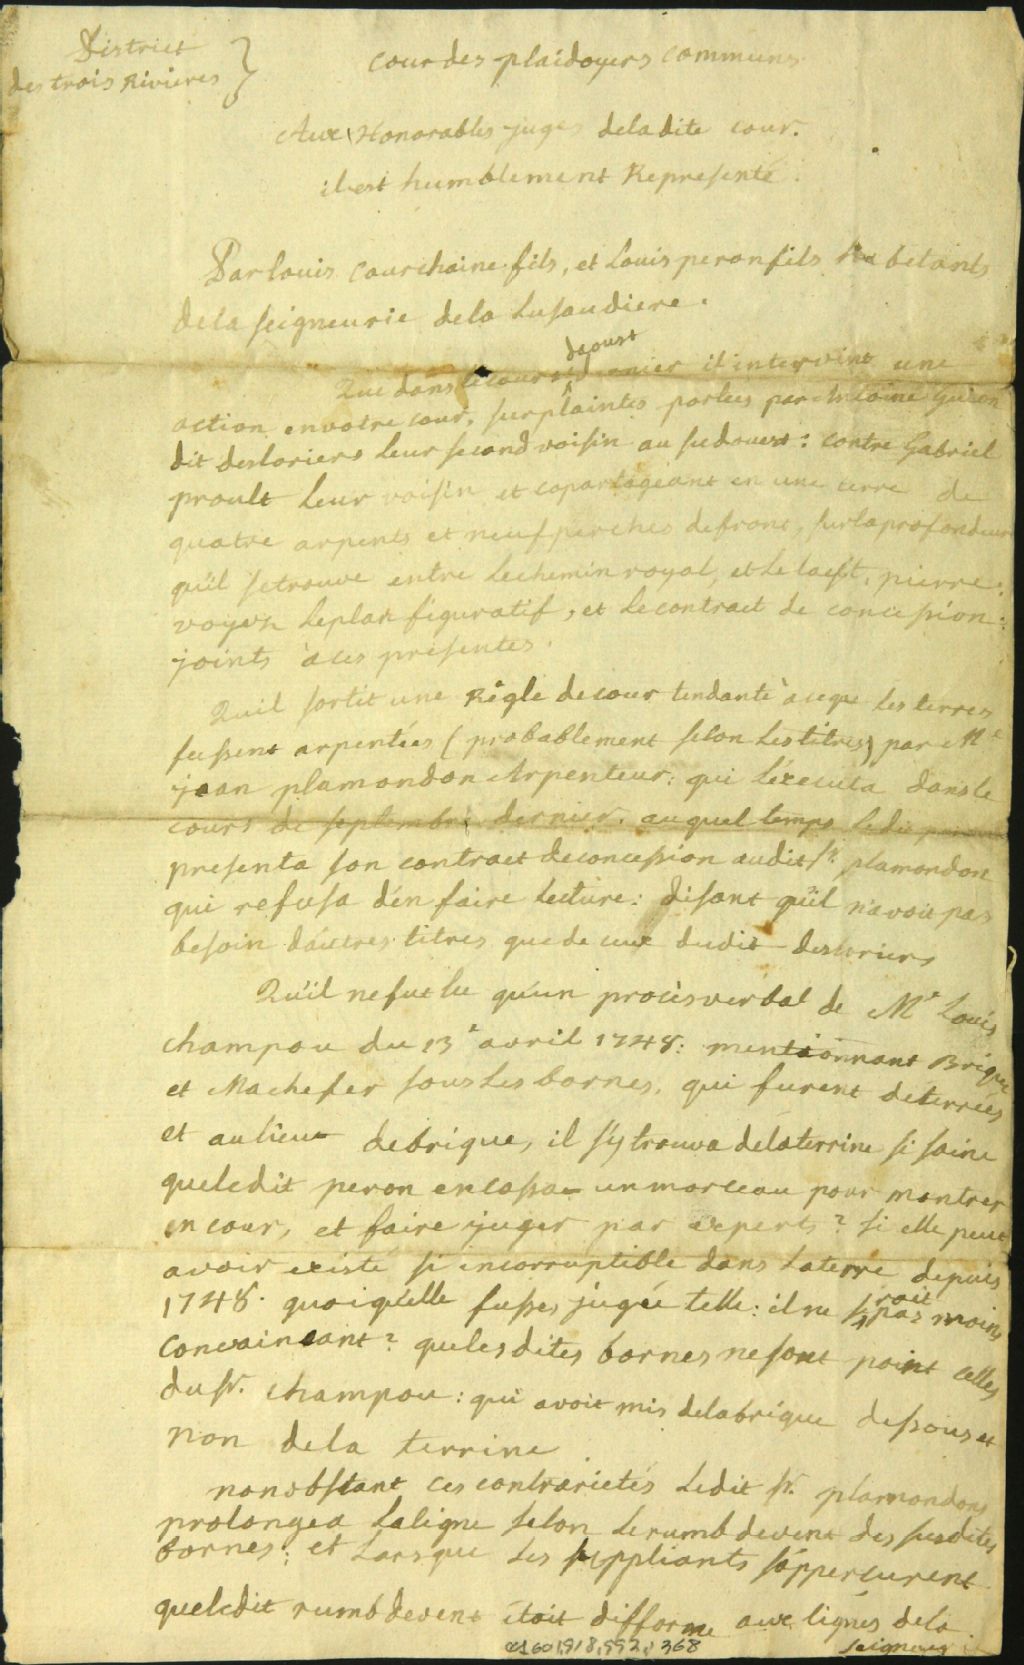 District
des trois Rivieres }
Cour des plaidoyers communs
Aux Honorables juges dela dite cour.
il est humblement Representé.
Par louis Courchaine fils, et Louis peron fils Habetants
dela seigneurie dela Lusaudiere.
aoust
Que dans le cours d' dernier il intervint une
action en votre cour, sur plaintes portées par Antoine Guion
dit desloriers leur second voisin au sudouest : contre Gabriel
proult leur voisin et copartageant en une terre de
quatre arpents et neuf perches defront, sur laprofondeur
qu'il setrouve entre lechemin royal, et le lac st. pierre:
voyez leplan figuratif, et lecontract de concession:
joints à ces présentes.
Quil sortit une Règle de cour tendante à ceque les terres
fussent arpentées (probablement selon les titres) par Mr
jean plamondon Arpenteur: qui l'éxecuta dans le
cours de septembre dernier. auquel temps ledit peron
presenta son contract deconcession audit sr. plamondon
qui refusa d'én faire lecture: disant qu'il n'avoit pas
besoin d'autres titres que de ceux dudit desloriers
Qu'il nefut lu qu'un procès verbal de Mr Louis
champou du 13e avril 1748: mentionnant Brique
et Machefer sous les bornes, qui furent déterrées
et aulieu debrique, il s'y trouva delaterrine si saine
queledit peron encassa un morceau pour montrer
en cour, et faire juger par experts? si elle peut
avoir existé si incorruptible dans laterre depuis
1748. quoiqu'elle fusse jugée telle: il ne seroit pas moins
convaincant? que les dites bornes nesont point celles
du sr. champou: qui avoit mis delabrique dessous et
non dela terrine
nonobstant ces contrarietés ledit sr. plamondon
prolongea laligne selon lerumb devent des susdites
bornes: et lorsque les suppliants s'appercurent
queledit rumb devent étoit difforme aux lignes dela
seigneurie